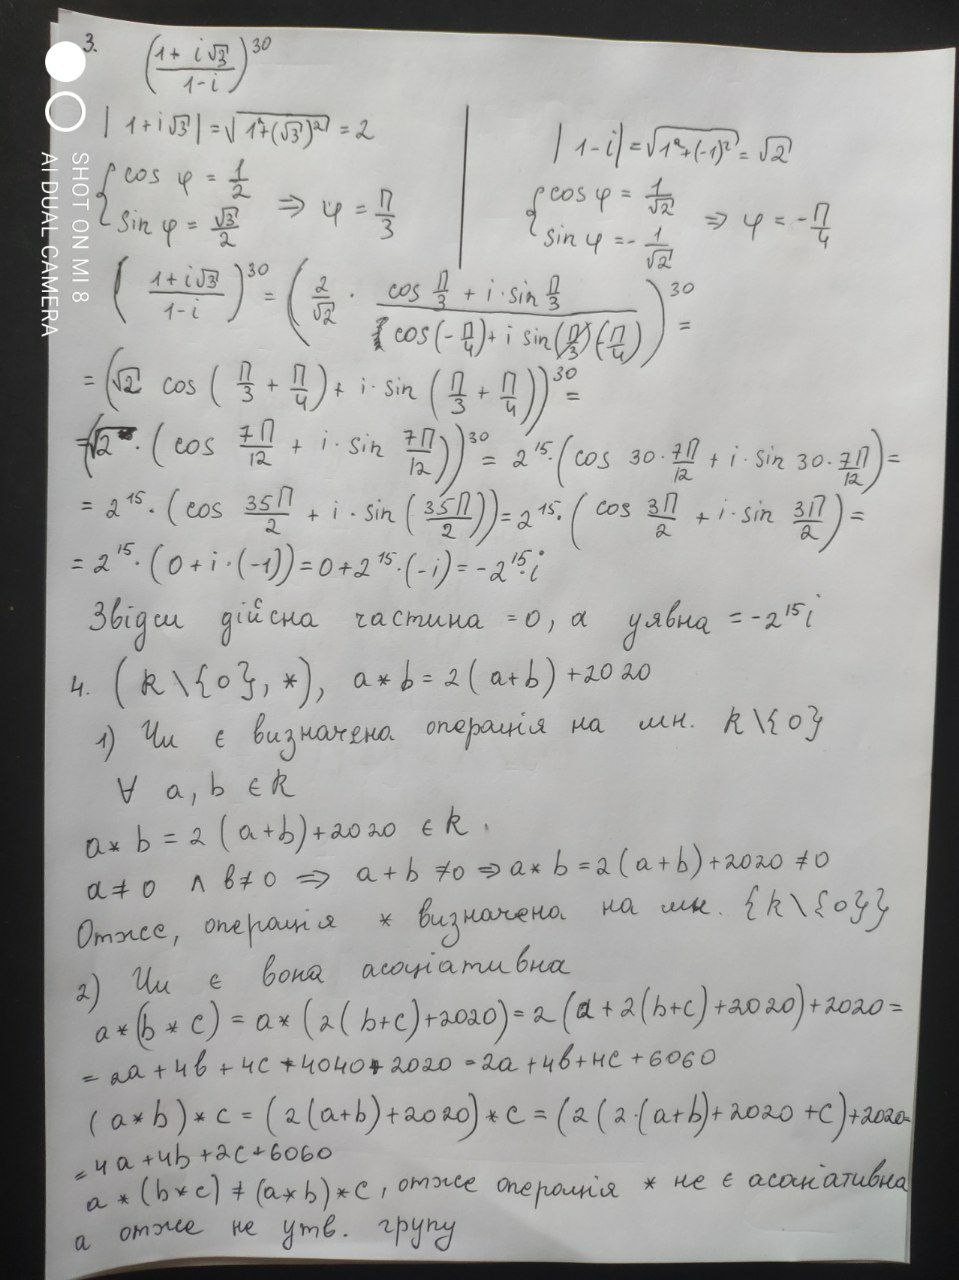 3. ((1+i√3)/(1-i))^30
|1+i√3| = √(1²+(√3)²) = 2
{cos φ = 1/2
sin φ = √3/2 ⇒ φ = π/3
|1-i| = √(1²+(-1)²) = √2
{cos φ = 1/√2
sin φ = -1/√2 ⇒ φ = -π/4
((1+i√3)/(1-i))^30 = (2/√2 · (cos π/3 + i·sin π/3)/(cos(-π/4) + i sin(-π/4)))^30 =
= (√2 cos(π/3 + π/4) + i·sin(π/3 + π/4))^30 =
= (√2 · (cos 7π/12 + i·sin 7π/12))^30 = 2^15 · (cos 30·7π/12 + i·sin 30·7π/12) =
= 2^15 · (cos 35π/2 + i·sin(35π/2)) = 2^15 · (cos 3π/2 + i·sin 3π/2) =
= 2^15 · (0+i·(-1)) = 0+2^15·(-i) = -2^15·i
Звідси дійсна частина = 0, а уявна = -2^15 i
4. (R\{0}, *), a*b = 2(a+b)+2020
1) Чи є визначена операція на мн. R\{0}
∀ a, b ∈ R
a*b = 2(a+b)+2020 ∈ R.
a≠0 ∧ b≠0 ⇒ a+b ≠0 ⇒ a*b = 2(a+b)+2020 ≠0
Отже, операція * визначена на мн. {R\{0}}
2) Чи є вона асоціативна
a*(b*c) = a*(2(b+c)+2020) = 2(a+2(b+c)+2020)+2020 =
= 2a+4b+4c+4040+2020 = 2a+4b+4c+6060
(a*b)*c = (2(a+b)+2020)*c = (2(2·(a+b)+2020+c)+2020=
= 4a+4b+2c+6060
a*(b*c) ≠ (a*b)*c, отже операція * не є асоціативна
а отже не утв. групу
SHOT ON MI 8
AI DUAL CAMERA